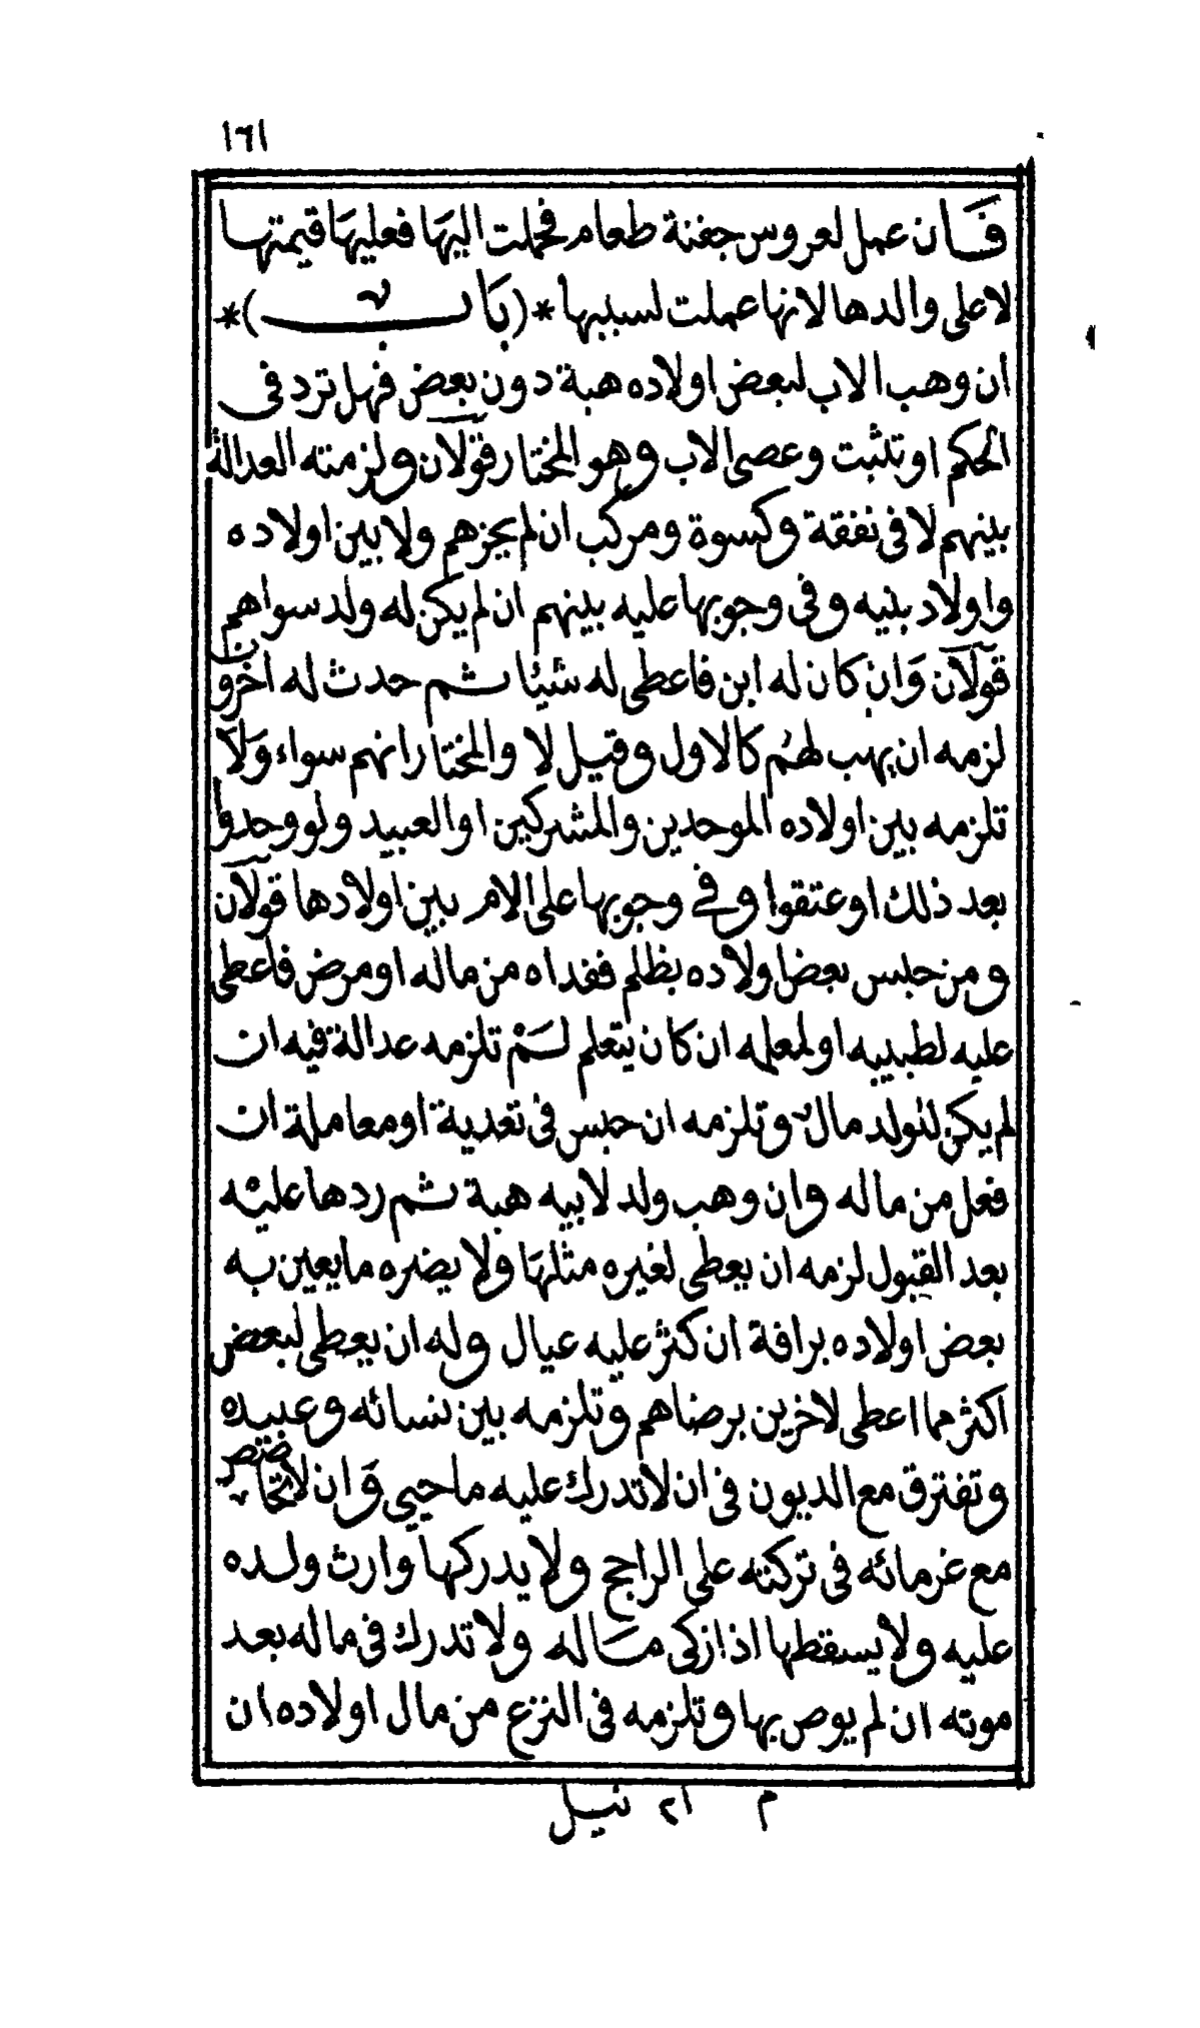 ١٦١
فَان عمل لعروس جفنة طعام فحملت اليهَا فعليهَا قيمتها
لا على والدها لانها عملت لسببها *(بَابٌ)*
ان وهب الاب لبعض اولاده هبة دون بعض فهل ترد فى
الحكم او تثبت وعصى الاب وهو المختار قولان ولزمته العدالة
بينهم لا فى نفقة وكسوة ومركب ان لم يجزهم ولا بين اولاده
واولاد بنيه وفى وجوبها عليه بينهم ان لم يكن له ولد سواهم
قولان وَان كان له ابن فاعطى له شيئا ثم حدث له اخرون
لزمه ان يهب لهُم كالاول وقيل لا والمختار انهم سواء وَلَا
تلزمه بين اولاده الموحدين والمشركين او العبيد ولو وحدوا
بعد ذلك او عتقوا وفى وجوبها على الام بين اولادها قولان
ومن حبس بعض اولاده بظلم ففداه من ماله او مرض فاعطى
عليه لطبيبه او لمعلمه ان كان يتعلم لَمْ تلزمه عدالة فيه ان
لم يكن للولد مال وتلزمه ان حبس فى تعدية او معاملة ان
فعل من ماله وان وهب ولد لابيه هبة ثم ردها عليْه
بعد القبول لزمه ان يعطى لغيره مثلهَا ولا يضره ما يعين به
بعض اولاده برافة ان كثر عليه عيال وله ان يعطى لبعض
اكثر مما اعطى لاخرين برضاهم وتلزمه بين نسائه وعبيده
وتفترق مع الديون فى ان لا تدرك عليه ما حيى وَان لا تحاصص
مع غرمائه فى تركته على الراجح ولا يدركها وارث ولده
عليه ولا يسقطها اذا زكى مَاله ولا تدرك فى ماله بعد
موته ان لم يوص بها وتلزمه فى النزع من مال اولاده ان
م ٢١ نيل